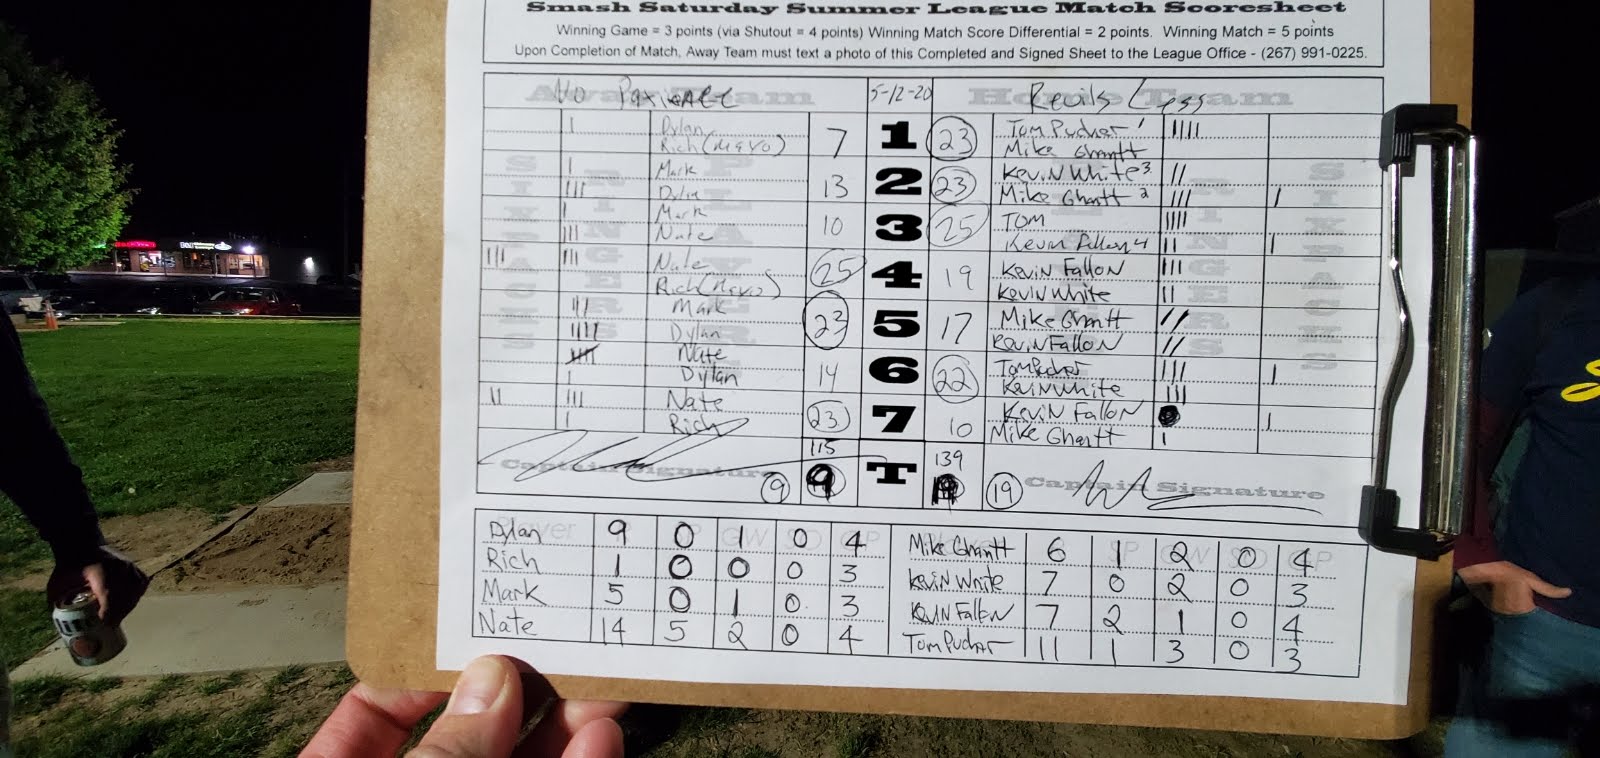 Smash Saturday Summer League Match Scoresheet
Winning Game = 3 points (via Shutout = 4 points) Winning Match Score Differential = 2 points. Winning Match = 5 points
Upon Completion of Match, Away Team must text a photo of this Completed and Signed Sheet to the League Office - (267) 991-0225.
Away Team 5-12-20 Home Team
No
Dylan 7 1 23 Tom Pucher
Rich (Mayo) Mike Ghantt
Mark 13 2 23 Kevin White 3
Dylan Mike Ghantt 2
Mark 10 3 25 Tom
Nate Kevin Fallon 4
Nate 25 4 19 Kevin Fallon
Rich (Mayo) Kevin White
Mark 23 5 17 Mike Ghantt
Dylan Kevin Fallon
Nate 14 6 22 Tom Pucher
Dylan Kevin White
Nate 23 7 10 Kevin Fallon
Rich Mike Ghantt
115 T 139
Captain Signature 9 9 19 Captain Signature
Dylan 9 0 1 0 4 Mike Ghantt 6 1 2 0 4
Rich 1 0 0 0 3 Kevin White 7 0 2 0 3
Mark 5 0 1 0 3 Kevin Fallon 7 2 1 0 4
Nate 14 5 2 0 4 Tom Pucher 11 1 3 0 3